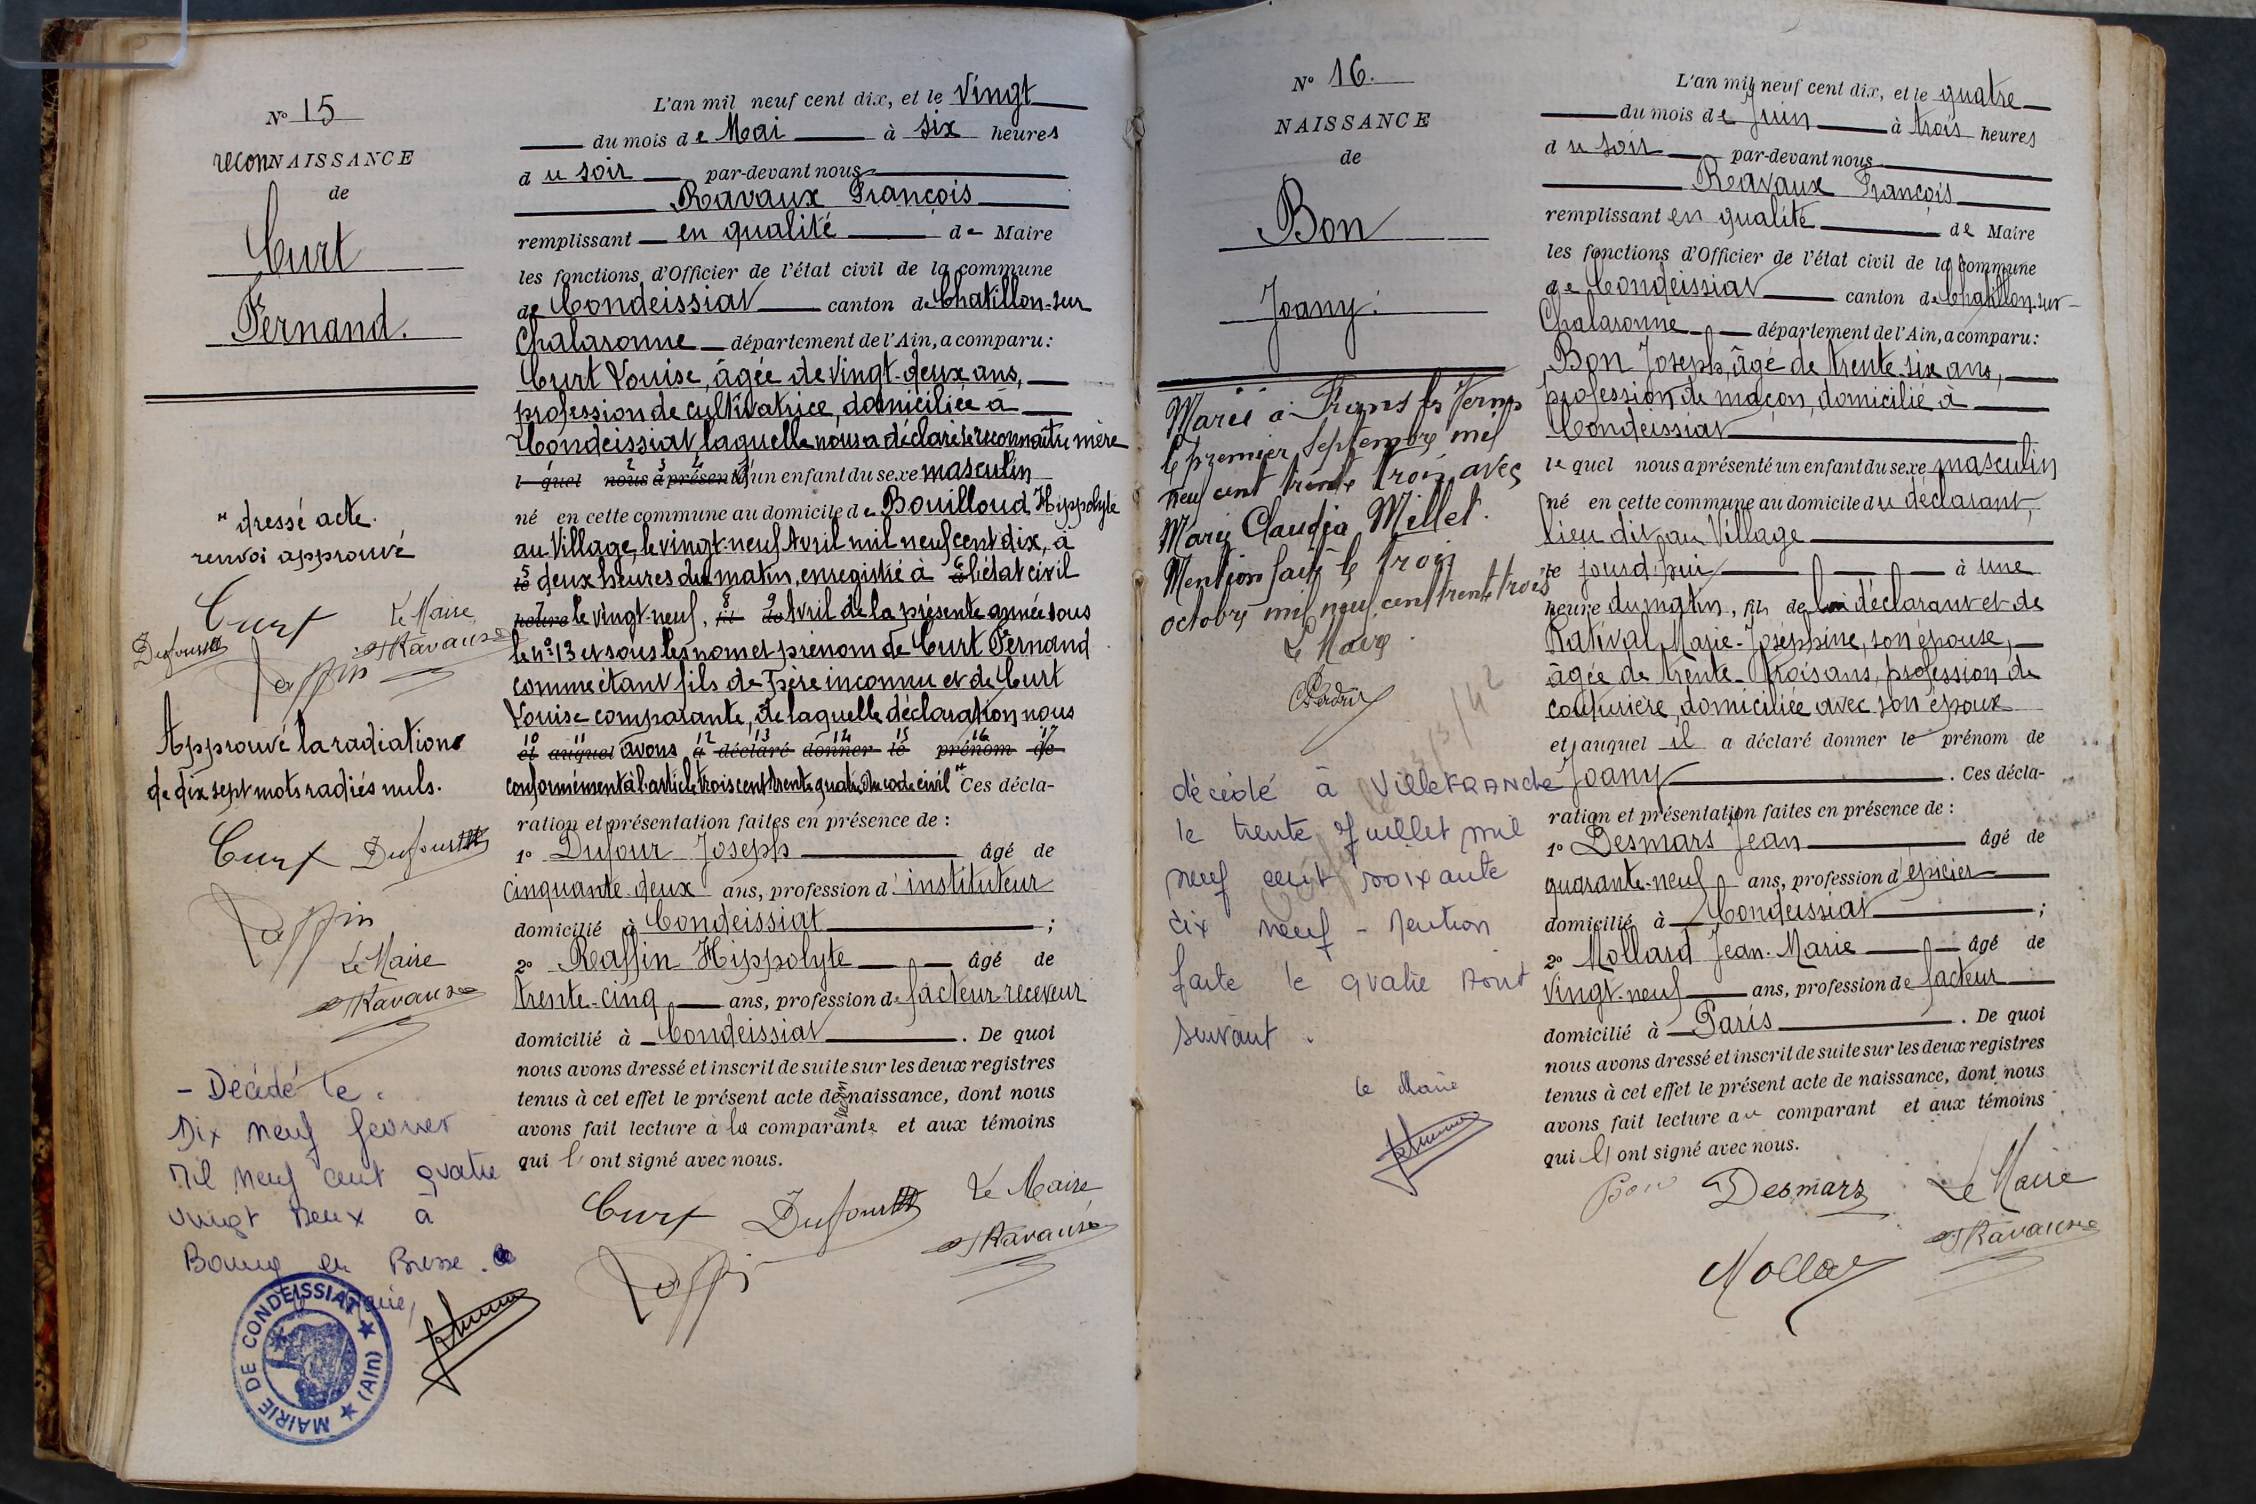 N° 15
reconNAISSANCE
de
Curt
Fernand.
" dressé acte.
renvoi approuvé
Curt
Le Maire
Dufour
Ravaux
Raffin
Approuvé la radiation
de dix sept mots radiés nuls.
Curt Dufour
Raffin
Le Maire
Ravaux
- Décédé le
Dix neuf février
Mil neuf cent quatre
vingt deux à
Bourg en Bresse.
Maire,
MAIRIE DE CONDEISSIAT ★ (AIn) ★
L'an mil neuf cent dix, et le vingt
du mois de Mai à six heures
du soir par-devant nous
Ravaux François
remplissant en qualité de Maire
les fonctions d'Officier de l'état civil de la commune
de Condeissiat canton de Chatillon-sur
Chalaronne département de l'Ain, a comparu:
Curt Louise, âgée de vingt-deux ans,
profession de cultivatrice, domiciliée à
Condeissiat, laquelle nous a déclaré se reconnaître mère
1 2 3 4
l quel nous a présenté d'un enfant du sexe masculin
né en cette commune au domicile de Bouilloud Hippolyte
au Village, le vingt-neuf Avril mil neuf cent dix, à
5 6
le deux heures du matin, enregistré à l'état civil
7 8 9
heure le vingt-neuf, Avril de la présente année sous
le n° 13 et sous les nom et prénom de Curt Fernand
comme étant fils de père inconnu et de Curt
Louise comparante, de laquelle déclaration nous
10 11 12 13 14 15 16 17
et auquel avons a déclaré donner le prénom de
conformément à l'article trois cent trente quatre du code civil " Ces décla-
ration et présentation faites en présence de :
1° Dufour Joseph âgé de
cinquante-deux ans, profession d'instituteur
domicilié à Condeissiat ;
2° Raffin Hippolyte âgé de
trente-cinq ans, profession de facteur-receveur
domicilié à Condeissiat . De quoi
nous avons dressé et inscrit de suite sur les deux registres
tenus à cet effet le présent acte de naissance, dont nous
avons fait lecture à la comparante et aux témoins
qui l'ont signé avec nous.
Curt Dufour Le Maire
Raffin Ravaux
N° 16.
NAISSANCE
de
Bon
Joany.
Marié à Trans
le premier septembre mil
neuf cent trente trois avec
Marie Claudia Millet.
Mention faite le trois
octobre mil neuf cent trente trois
Le Maire
décédé à VilleFRANche
le trente Juillet mil
neuf cent soixante
dix neuf - Mention
faite le quatre Aout
suivant.
Le Maire
L'an mil neuf cent dix, et le quatre
du mois de Juin à trois heures
du soir par-devant nous
Ravaux François
remplissant en qualité de Maire
les fonctions d'Officier de l'état civil de la commune
de Condeissiat canton de Chatillon-sur-
Chalaronne département de l'Ain, a comparu:
Bon Joseph, âgé de trente-six ans,
profession de maçon, domicilié à
Condeissiat
lequel nous a présenté un enfant du sexe masculin
né en cette commune au domicile du déclarant,
lieu dit au Village
ce jourd'hui à une
heure du matin, fils de lui déclarant et de
Ratival Marie-Joséphine, son épouse,
âgée de trente-trois ans, profession de
couturière, domiciliée avec son époux
et auquel il a déclaré donner le prénom de
Joany . Ces décla-
ration et présentation faites en présence de :
1° Desmars Jean âgé de
quarante-neuf ans, profession d'épicier
domicilié à Condeissiat ;
2° Mollard Jean-Marie âgé de
vingt-neuf ans, profession de facteur
domicilié à Paris . De quoi
nous avons dressé et inscrit de suite sur les deux registres
tenus à cet effet le présent acte de naissance, dont nous
avons fait lecture au comparant et aux témoins
qui l'ont signé avec nous.
Bon Desmars Le Maire
Ravaux
Mollard